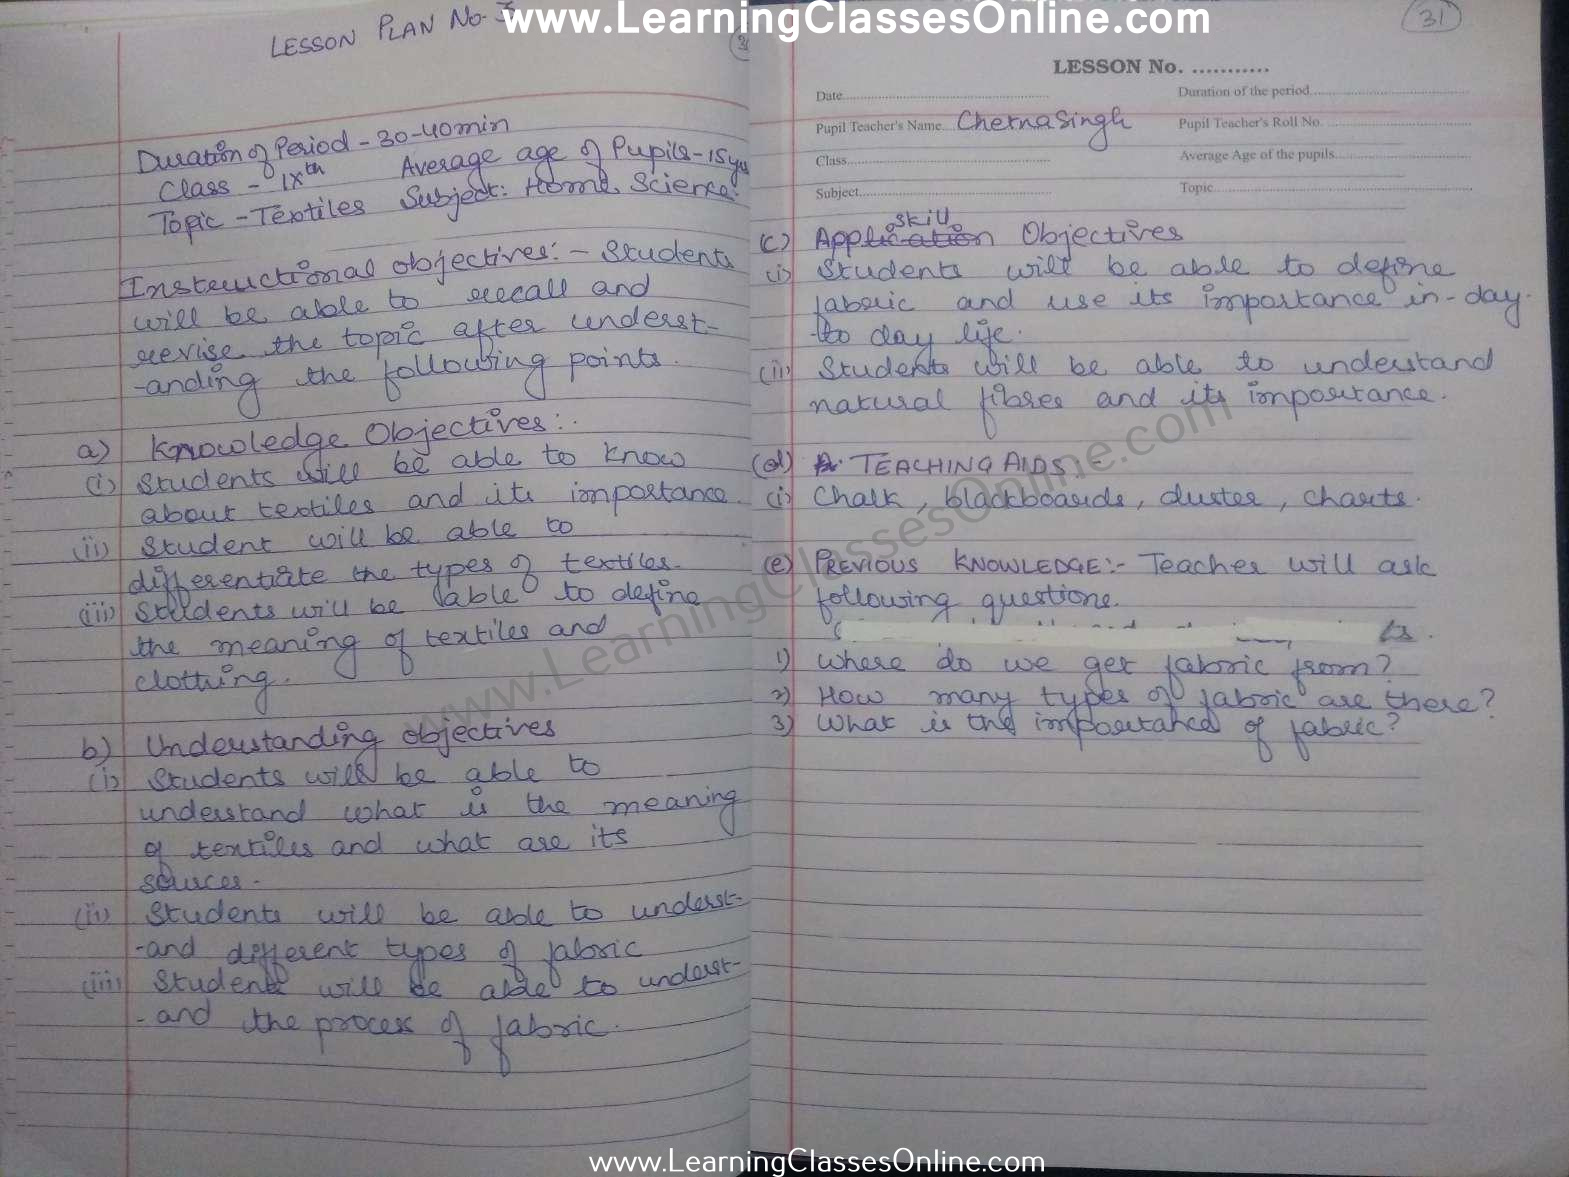 www.LearningClassesOnline.com
LESSON PLAN No.
Duration of Period - 30-40min
Class - IXth Average age of Pupils - 15yrs
Topic - Textiles Subject: Home Science.
Instructional objectives: - Students
will be able to recall and
revise the topic after underst-
-anding the following points.
a) Knowledge Objectives:
(i) Students will be able to know
about textiles and its importance
(ii) Student will be able to
differentiate the types of textiles.
(iii) Students will be able to define
the meaning of textiles and
clothing.
b) Understanding objectives
(i) Students will be able to
understand what is the meaning
of textiles and what are its
sources.
(ii) Students will be able to underst-
-and different types of fabric
(iii) Students will be able to underst-
-and the process of fabric.
31
LESSON No. ...........
Date........ Duration of the period........
Pupil Teacher's Name.... Chetna Singh Pupil Teacher's Roll No.........
Class........ Average Age of the pupils........
Subject........ Topic........
skill
(c) Application Objectives
(i) Students will be able to define
fabric and use its importance in-day-
to day life.
(ii) Students will be able to understand
natural fibres and its importance.
(d) A. TEACHING AIDS
(i) Chalk, blackboards, duster, charts.
(e) PREVIOUS KNOWLEDGE:- Teacher will ask
following questions.
1) Where do we get fabric from?
2) How many types of fabric are there?
3) What is the importance of fabric?
www.LearningClassesOnline.com
www.LearningClassesOnline.com